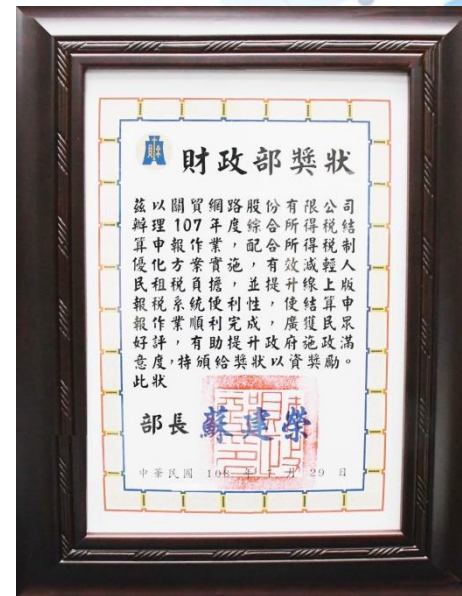 財政部獎狀
茲以關貿網路股份有限公司
辦理107年度綜合所得稅結
算申報作業，配合所得稅制
優化方案實施，有效減輕人
民租稅負擔，並提升線上版
報稅系統便利性，使結算申
報作業順利完成，廣獲民眾
好評，有助提升政府施政滿
意度，特頒給獎狀以資獎勵。
此狀
部長 蘇建榮
中華民國 108 年 月 29 日